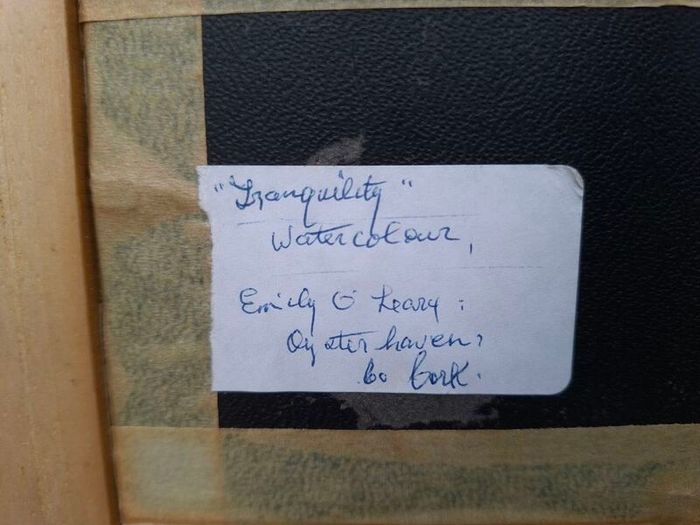 "Tranquility"
Watercolour,
Emily O'Leary.
Oysterhaven,
Co Cork.